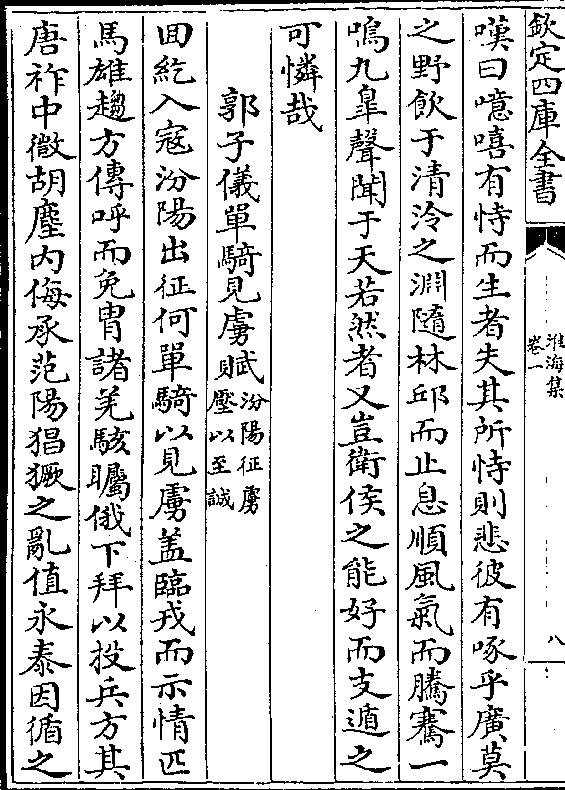 欽定四庫全書
淮海集
卷一
八
嘆曰噫嘻有恃而生者失其所恃則悲彼有啄乎廣莫
之野飲于清泠之淵隨林邱而止息順風氣而騰騫一
鳴九臯聲聞于天若然者又豈衛侯之能好而支遁之
可憐哉
郭子儀單騎見虜賦汾陽征虜
壓以至誠
回紇入寇汾陽出征何單騎以見虜盖臨戎而示情匹
馬雄趨方傳呼而免胄諸羌駭矚俄下拜以投兵方其
唐祚中微胡塵内侮承范陽猖獗之亂值永泰因循之